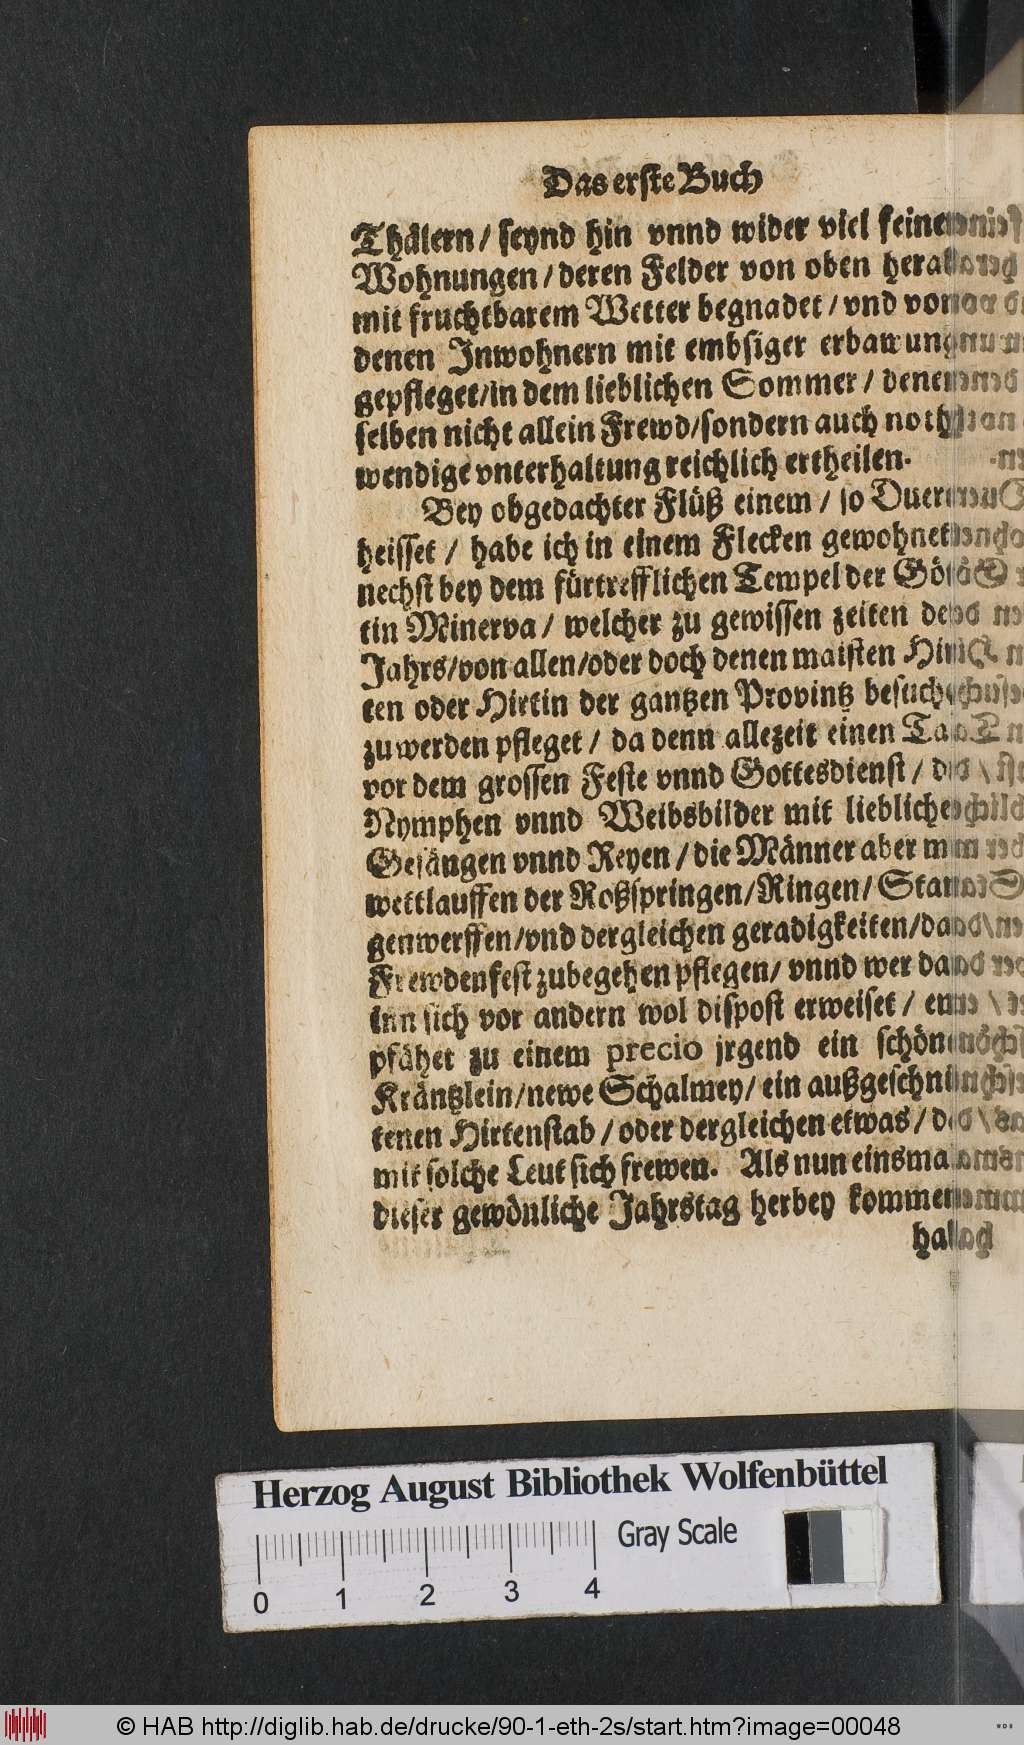 Das erste Buch
Thälern / seynd hin vnnd wider viel feine
Wohnungen / deren Felder von oben herab
mit fruchtbarem Wetter begnadet / vnd von
denen Inwohnern mit embsiger erbawung
gepfleget / in dem lieblichen Sommer / denen
selben nicht allein Frewd / sondern auch noth
wendige vnterhaltung reichlich ertheilen.
Bey obgedachter Flüß einem / so Duero
heisset / habe ich in einem Flecken gewohnet
nechst bey dem fürtrefflichen Tempel der Göt
tin Minerva / welcher zu gewissen zeiten deß
Jahrs / von allen / oder doch denen maisten Hir
ten oder Hirtin der gantzen Provintz besucht
zu werden pfleget / da denn allezeit einen Tag
vor dem grossen Feste vnnd Gottesdienst / die
Nymphen vnnd Weibsbilder mit lieblichen
Gesängen vnnd Reyen / die Männer aber mit
wettlauffen der Roßspringen / Ringen / Stan
genwerffen / vnd dergleichen geradigkeiten / das
Frewdenfest zubegehen pflegen / vnnd wer dar
inn sich vor andern wol dispost erweiset / em
pfähet zu einem precio jrgend ein schönes
Kräntzlein / newe Schalmey / ein außgeschnit
tenen Hirtenstab / oder dergleichen etwas / da
mit solche Leut sich frewen. Als nun einsmals
dieser gewönliche Jahrstag herbey kommen
hab
Herzog August Bibliothek Wolfenbüttel
Gray Scale
0 1 2 3 4
© HAB http://diglib.hab.de/drucke/90-1-eth-2s/start.htm?image=00048